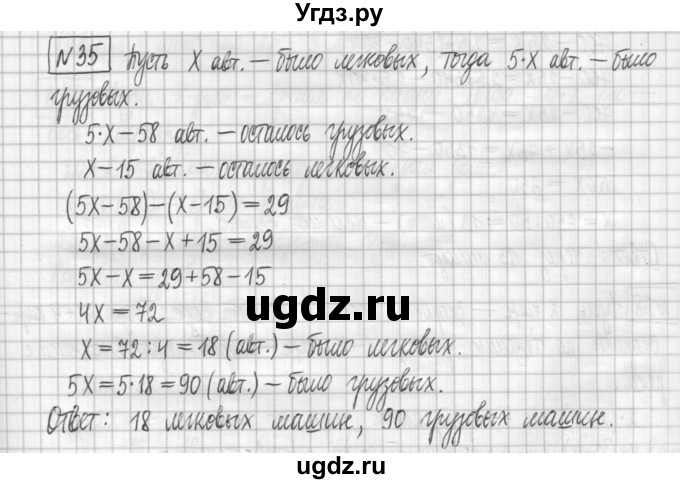 Угдз.ру
№35 Пусть x авт. – было легковых, тогда 5·x авт. – было
грузовых.
5·x–58 авт. – осталось грузовых.
x–15 авт. – осталось легковых.
(5x–58)–(x–15)=29
5x–58–x+15=29
5x–x=29+58–15
4x=72
ugdz.ru
x=72:4=18 (авт.) – было легковых.
5x=5·18=90 (авт.) – было грузовых.
Ответ: 18 легковых машин, 90 грузовых машин.
ugdz.ru